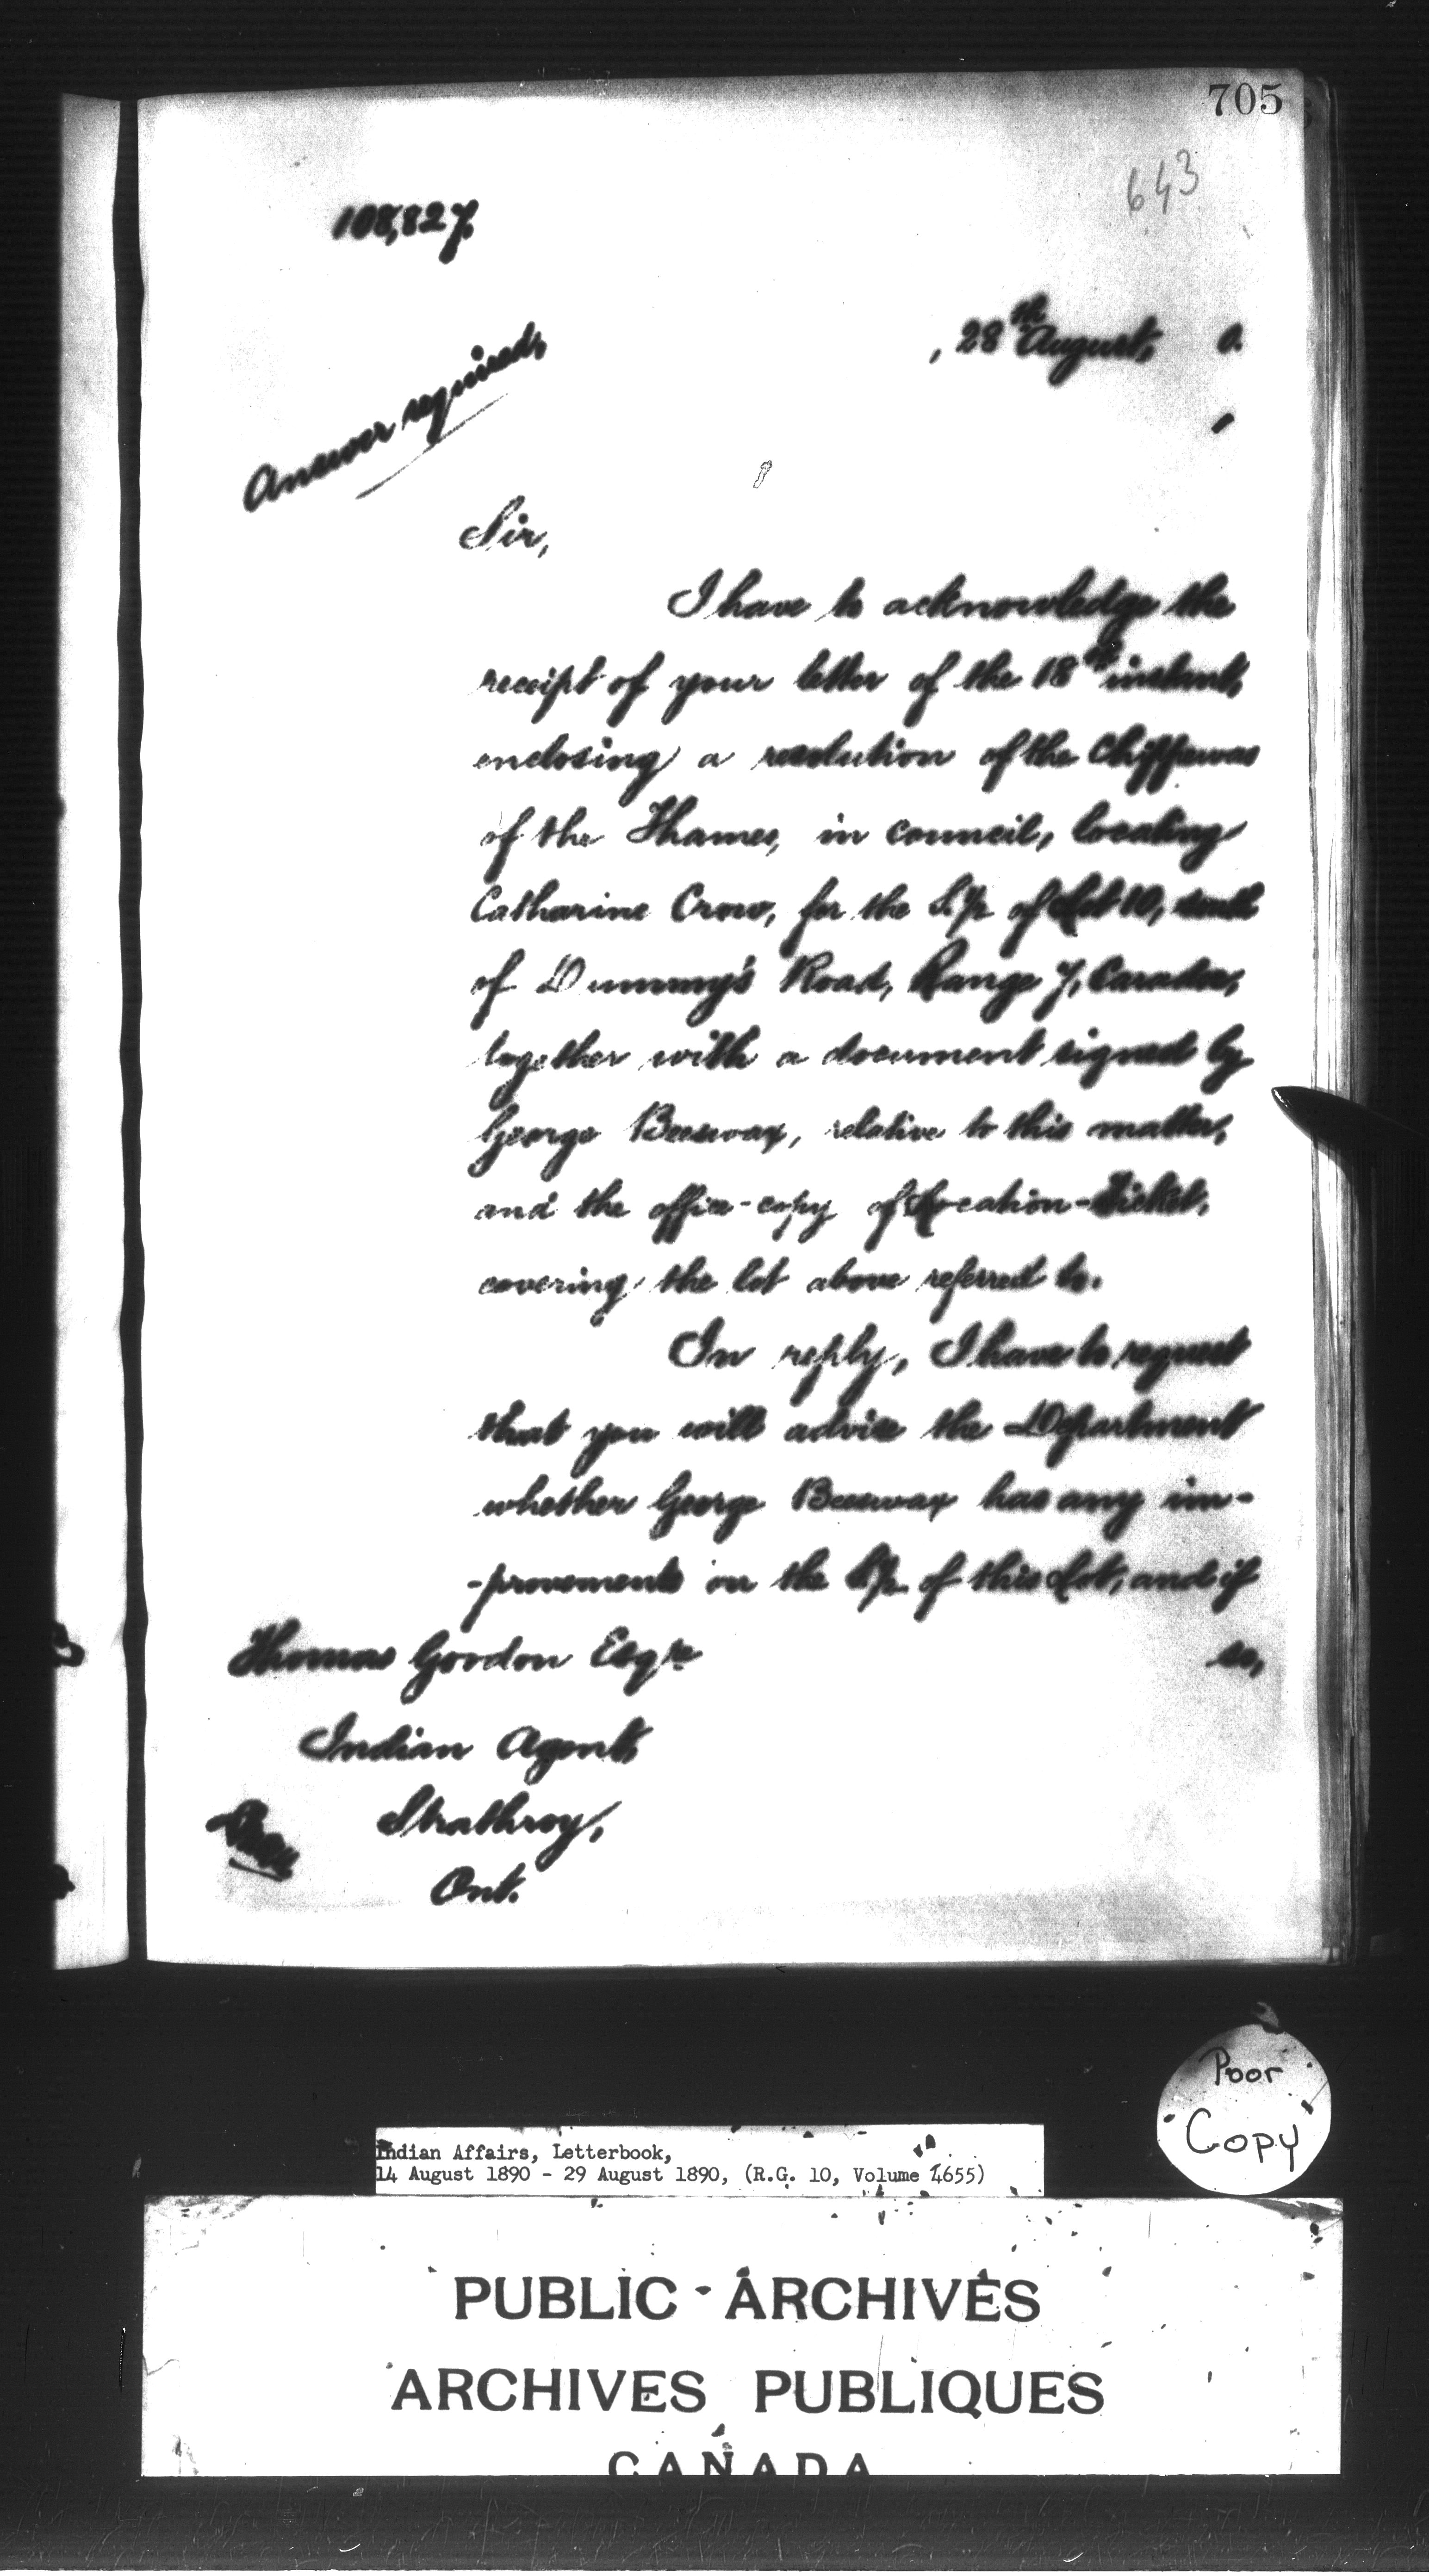 705
643
108,827.
, 28th August, 0.
Answer required,
Sir,
I have to acknowledge the
receipt of your letter of the 18th instant,
enclosing a resolution of the Chippewas
of the Thames, in council, locating
Catharine Crow, for the S. ½ of Lot 10, south
of Dummy's Road, Range 7, Caradoc,
together with a document signed by
George Beeswax, relative to this matter,
and the office-copy of Location-Ticket,
covering the lot above referred to.
In reply, I have to request
that you will advise the Department
whether George Beeswax has any im-
-provements on the S½ of this Lot, and if
so,
Thomas Gordon Esqre
Indian Agent,
Strathroy,
Ont.
Poor
Copy
Indian Affairs, Letterbook,
14 August 1890 - 29 August 1890, (R.G. 10, Volume 4655)
PUBLIC ARCHIVES
ARCHIVES PUBLIQUES
CANADA